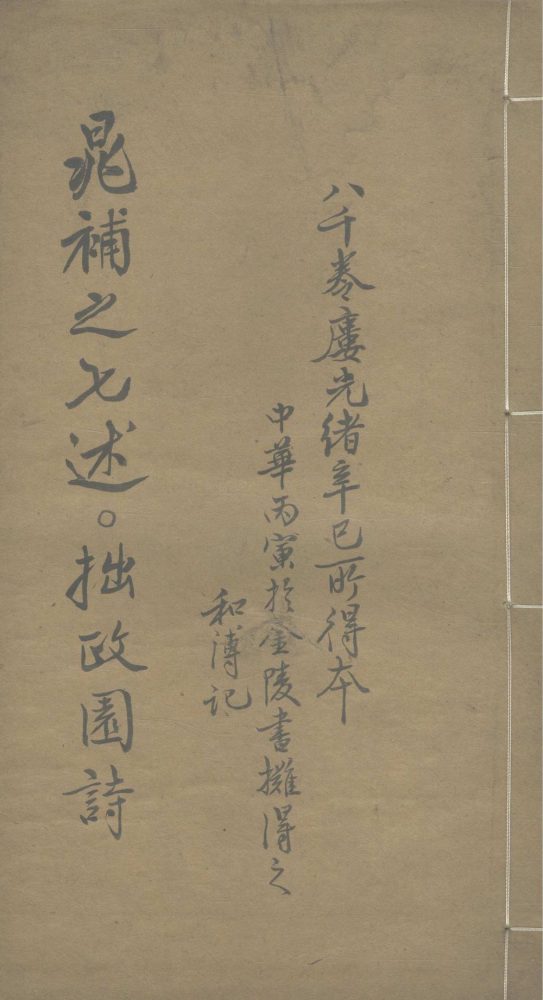 八千卷廔光緒辛巳所得本
中華丙寅於金陵書攤得之
和溥記
晁補之七述。拙政園詩